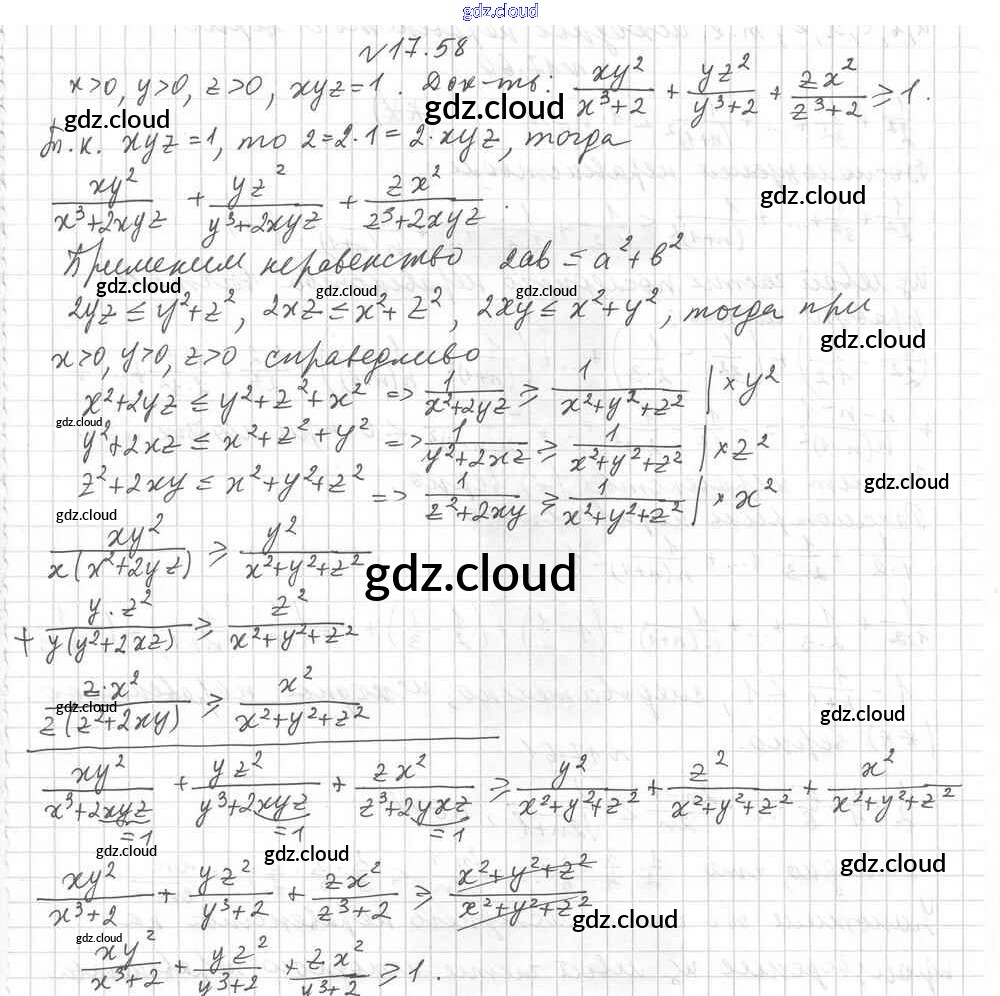 gdz.cloud
№17.58
x>0, y>0, z>0, xyz=1. Док-ть: xy²/(x³+2) + yz²/(y³+2) + zx²/(z³+2) ≥ 1.
gdz.cloud gdz.cloud gdz.cloud
Т.к. xyz=1, то 2=2·1=2·xyz, тогда
xy²/(x³+2xyz) + yz²/(y³+2xyz) + zx²/(z³+2xyz).
gdz.cloud
Применим неравенство 2ab ≤ a²+b²
gdz.cloud gdz.cloud gdz.cloud
2yz ≤ y²+z², 2xz ≤ x²+z², 2xy ≤ x²+y², тогда при
gdz.cloud
x>0, y>0, z>0 справедливо
x²+2yz ≤ y²+z²+x² => 1/(x²+2yz) ≥ 1/(x²+y²+z²) | ×y²
gdz.cloud
y²+2xz ≤ x²+z²+y² => 1/(y²+2xz) ≥ 1/(x²+y²+z²) | ×z²
z²+2xy ≤ x²+y²+z² => 1/(z²+2xy) ≥ 1/(x²+y²+z²) | ×x²
gdz.cloud
gdz.cloud
xy²/(x(x²+2yz)) ≥ y²/(x²+y²+z²)
gdz.cloud
+ y·z²/(y(y²+2xz)) ≥ z²/(x²+y²+z²)
z·x²/(z(z²+2xy)) ≥ x²/(x²+y²+z²)
gdz.cloud gdz.cloud
xy²/(x³+2xyz) + yz²/(y³+2xyz) + zx²/(z³+2yxz) ≥ y²/(x²+y²+z²) + z²/(x²+y²+z²) + x²/(x²+y²+z²)
=1 =1 =1
gdz.cloud gdz.cloud gdz.cloud
xy²/(x³+2) + yz²/(y³+2) + zx²/(z³+2) ≥ (x²+y²+z²)/(x²+y²+z²)
gdz.cloud gdz.cloud
xy²/(x³+2) + yz²/(y³+2) + zx²/(y³+2) ≥ 1.